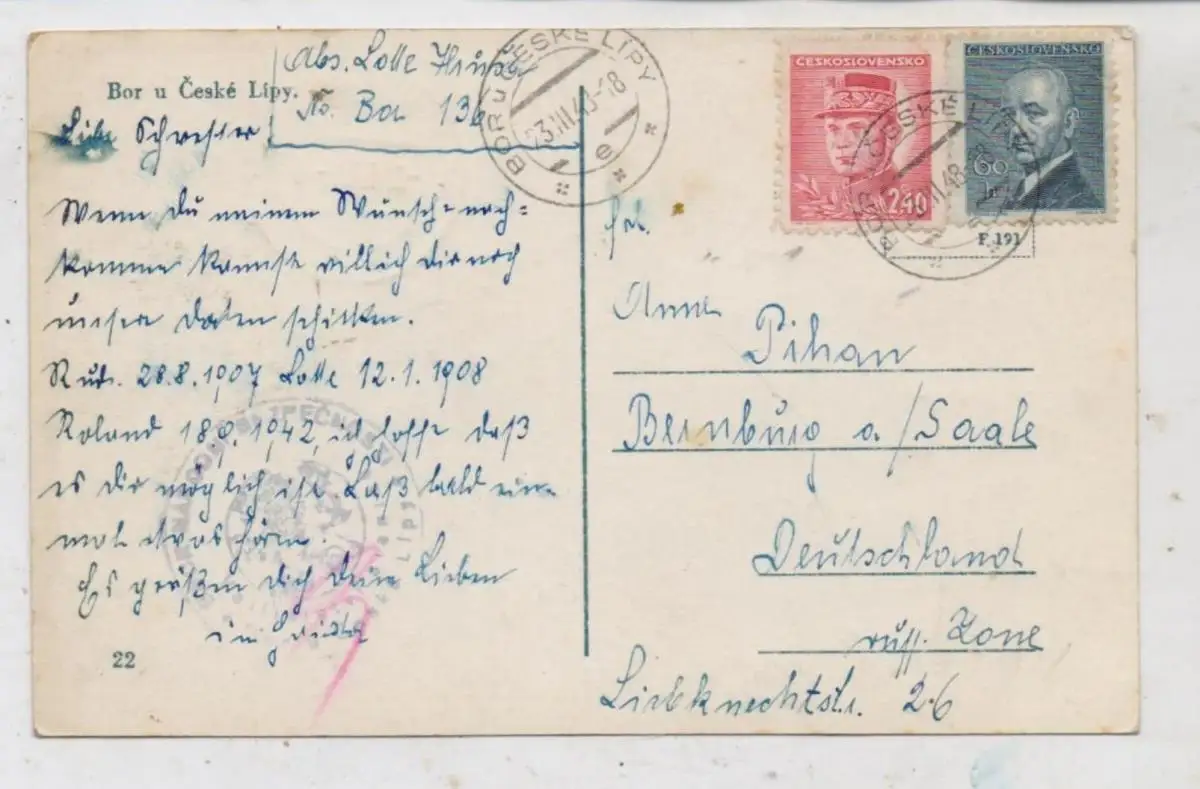 Bor u České Lípy.
Abs. Lotte
No. Bor 136
Liebe Schwester
Wenn Du meinem Wunsch nach=
komme kannst villich dir noch
unsere Daten schikken.
Rud. 28.8.1907 Lotte 12.1.1908
Roland 18.9.1942, ich hoffe daß
es dir möglich ist. Laß bald ein=
mal etwas hören.
Es grüßen dich deine Lieben
22
BOR u ČESKÉ LÍPY
23.III.48-18
e
ČESKOSLOVENSKO
2·40
ČESKOSLOVENSKO
60
BOR u ČESKÉ LÍPY
III.48-18
F 191
Frl.
Anna
Pihan
Bernburg a./Saale
Deutschland
russ. Zone
Liebknechtstr. 26